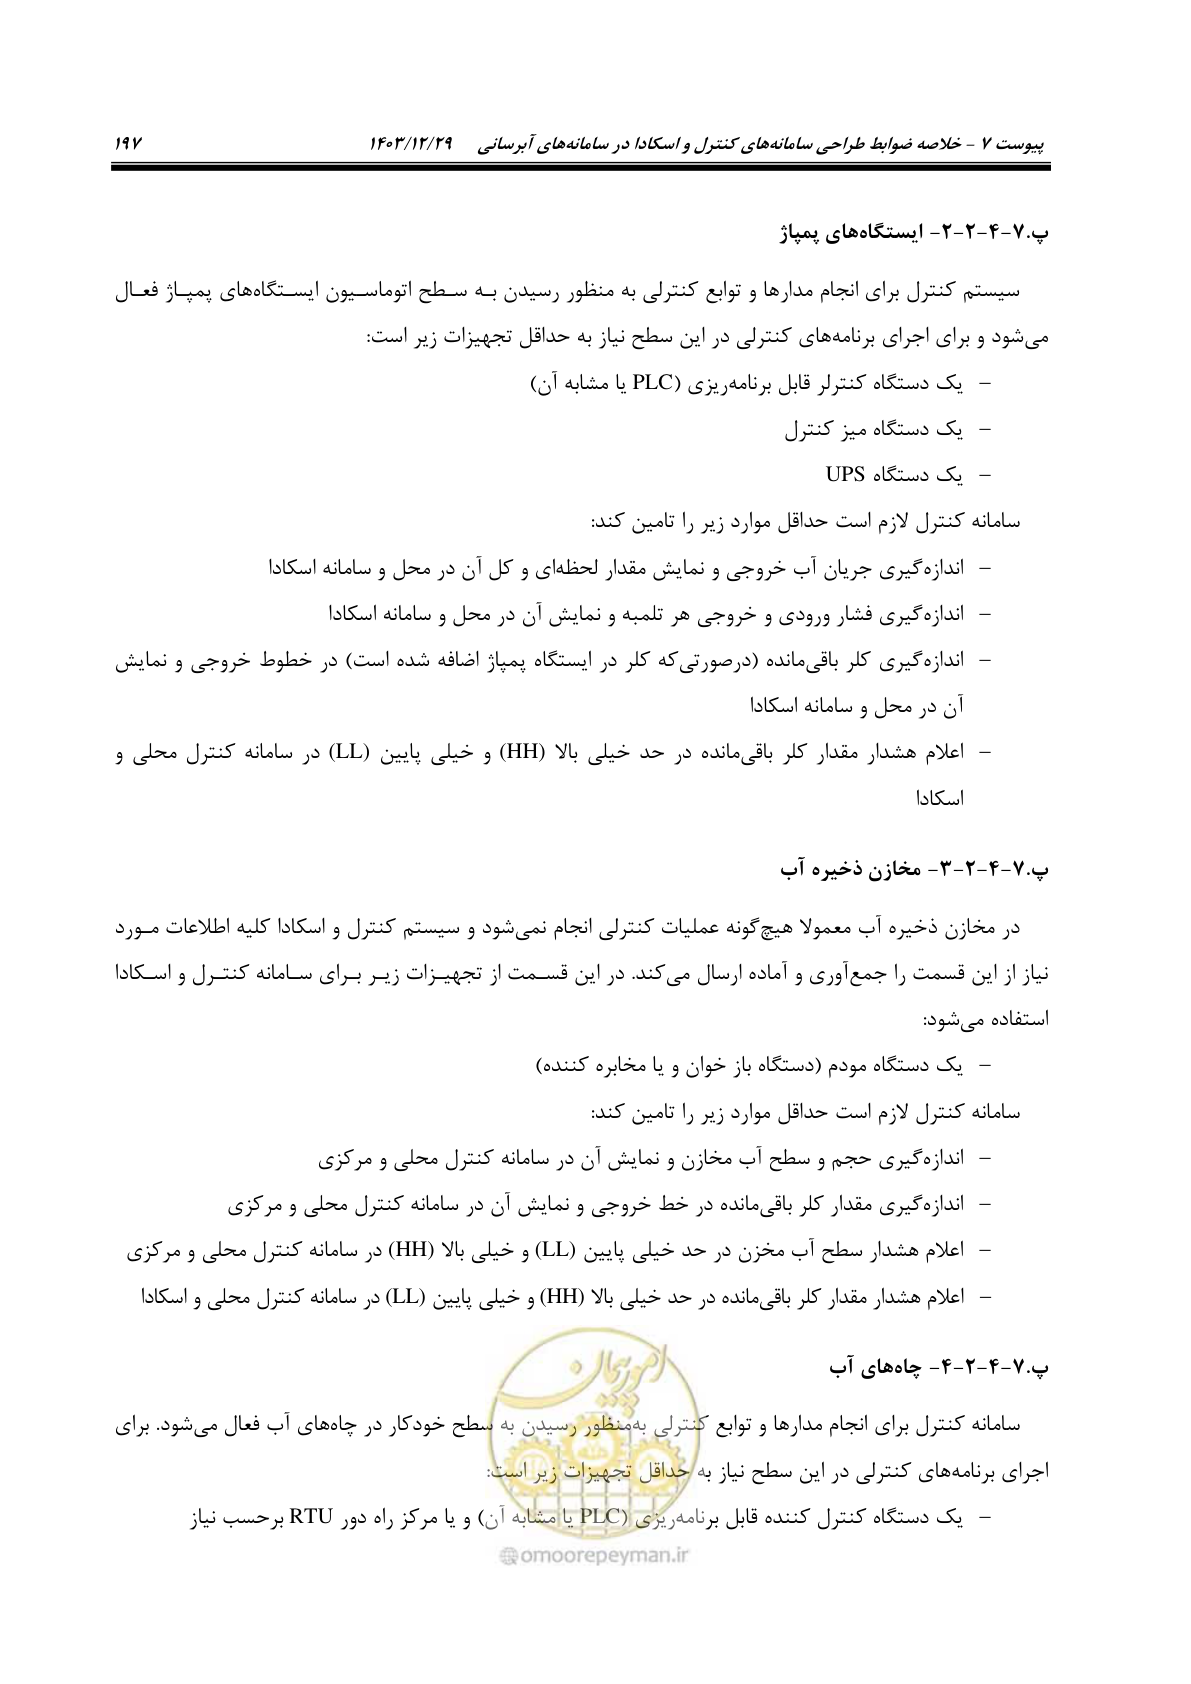 پیوست ۷ - خلاصه ضوابط طراحی سامانه‌های کنترل و اسکادا در سامانه‌های آبرسانی ۱۴۰۳/۱۲/۲۹ ۱۹۷
پ.۷-۴-۲-۲- ایستگاه‌های پمپاژ
سیستم کنترل برای انجام مدارها و توابع کنترلی به منظور رسیدن به سطح اتوماسیون ایستگاه‌های پمپاژ فعال
می‌شود و برای اجرای برنامه‌های کنترلی در این سطح نیاز به حداقل تجهیزات زیر است:
– یک دستگاه کنترلر قابل برنامه‌ریزی (PLC یا مشابه آن)
– یک دستگاه میز کنترل
– یک دستگاه UPS
سامانه کنترل لازم است حداقل موارد زیر را تامین کند:
– اندازه‌گیری جریان آب خروجی و نمایش مقدار لحظه‌ای و کل آن در محل و سامانه اسکادا
– اندازه‌گیری فشار ورودی و خروجی هر تلمبه و نمایش آن در محل و سامانه اسکادا
– اندازه‌گیری کلر باقی‌مانده (درصورتی‌که کلر در ایستگاه پمپاژ اضافه شده است) در خطوط خروجی و نمایش
آن در محل و سامانه اسکادا
– اعلام هشدار مقدار کلر باقی‌مانده در حد خیلی بالا (HH) و خیلی پایین (LL) در سامانه کنترل محلی و
اسکادا
پ.۷-۴-۲-۳- مخازن ذخیره آب
در مخازن ذخیره آب معمولا هیچ‌گونه عملیات کنترلی انجام نمی‌شود و سیستم کنترل و اسکادا کلیه اطلاعات مورد
نیاز از این قسمت را جمع‌آوری و آماده ارسال می‌کند. در این قسمت از تجهیزات زیر برای سامانه کنترل و اسکادا
استفاده می‌شود:
– یک دستگاه مودم (دستگاه باز خوان و یا مخابره کننده)
سامانه کنترل لازم است حداقل موارد زیر را تامین کند:
– اندازه‌گیری حجم و سطح آب مخازن و نمایش آن در سامانه کنترل محلی و مرکزی
– اندازه‌گیری مقدار کلر باقی‌مانده در خط خروجی و نمایش آن در سامانه کنترل محلی و مرکزی
– اعلام هشدار سطح آب مخزن در حد خیلی پایین (LL) و خیلی بالا (HH) در سامانه کنترل محلی و مرکزی
– اعلام هشدار مقدار کلر باقی‌مانده در حد خیلی بالا (HH) و خیلی پایین (LL) در سامانه کنترل محلی و اسکادا
پ.۷-۴-۲-۴- چاه‌های آب
امور پیمان
سامانه کنترل برای انجام مدارها و توابع کنترلی به‌منظور رسیدن به سطح خودکار در چاه‌های آب فعال می‌شود. برای
اجرای برنامه‌های کنترلی در این سطح نیاز به حداقل تجهیزات زیر است:
– یک دستگاه کنترل کننده قابل برنامه‌ریزی (PLC یا مشابه آن) و یا مرکز راه دور RTU برحسب نیاز
omoorepeyman.ir